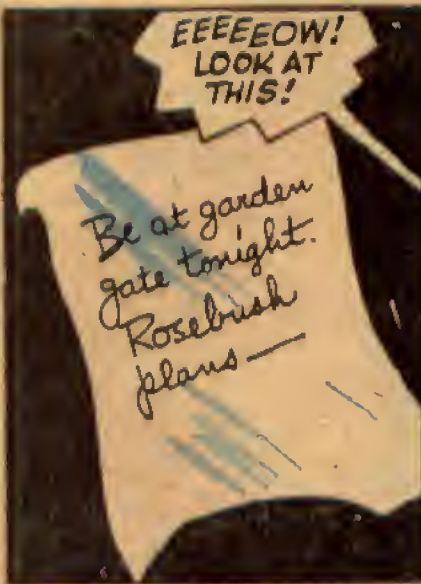 EEEEEOW!
LOOK AT
THIS!
Be at garden
gate tonight.
Rosebush
plans—